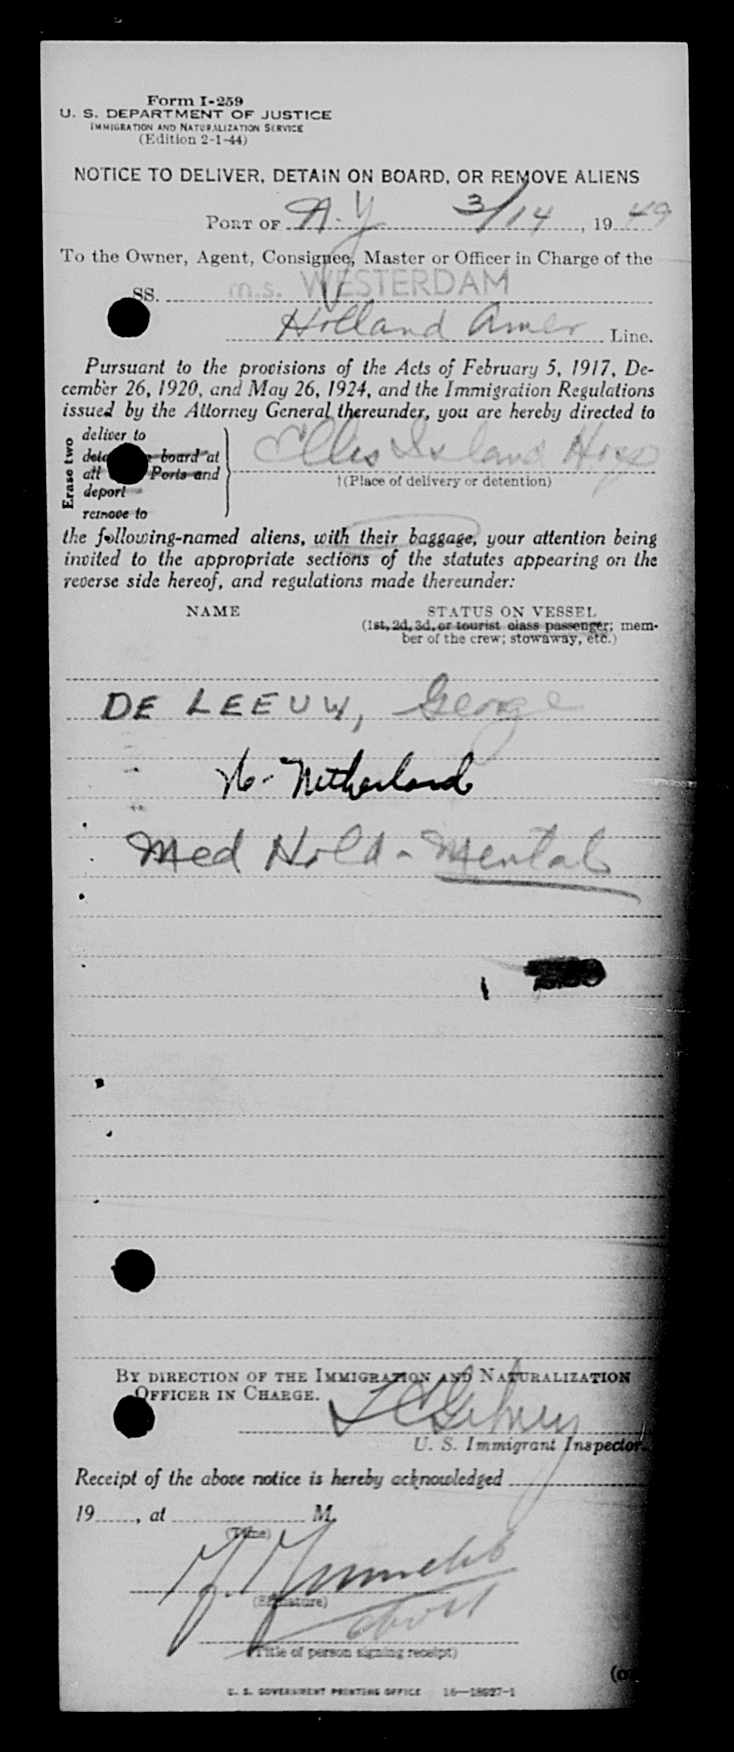 Form I-259
U. S. DEPARTMENT OF JUSTICE
IMMIGRATION AND NATURALIZATION SERVICE
(Edition 2-1-44)
NOTICE TO DELIVER, DETAIN ON BOARD, OR REMOVE ALIENS
PORT OF N.Y. 3/14, 1949
To the Owner, Agent, Consignee, Master or Officer in Charge of the
SS. m.s. WESTERDAM
Holland Amer Line.
Pursuant to the provisions of the Acts of February 5, 1917, De-
cember 26, 1920, and May 26, 1924, and the Immigration Regulations
issued by the Attorney General thereunder, you are hereby directed to
Erase two
deliver to
board at
all Ports and
deport
remove to
Ellis Island Hosp
†(Place of delivery or detention)
the following-named aliens, with their baggage, your attention being
invited to the appropriate sections of the statutes appearing on the
reverse side hereof, and regulations made thereunder:
NAME STATUS ON VESSEL
(1st, 2d, 3d, or tourist class passenger; mem-
ber of the crew; stowaway, etc.)
DE LEEUW, George
Netherland
Med Hold - Mental
BY DIRECTION OF THE IMMIGRATION AND NATURALIZATION
OFFICER IN CHARGE.
U. S. Immigrant Inspector.
Receipt of the above notice is hereby acknowledged
19, at M.
(Time)
(Signature)
(Title of person signing receipt)
U. S. GOVERNMENT PRINTING OFFICE 16—18927-1